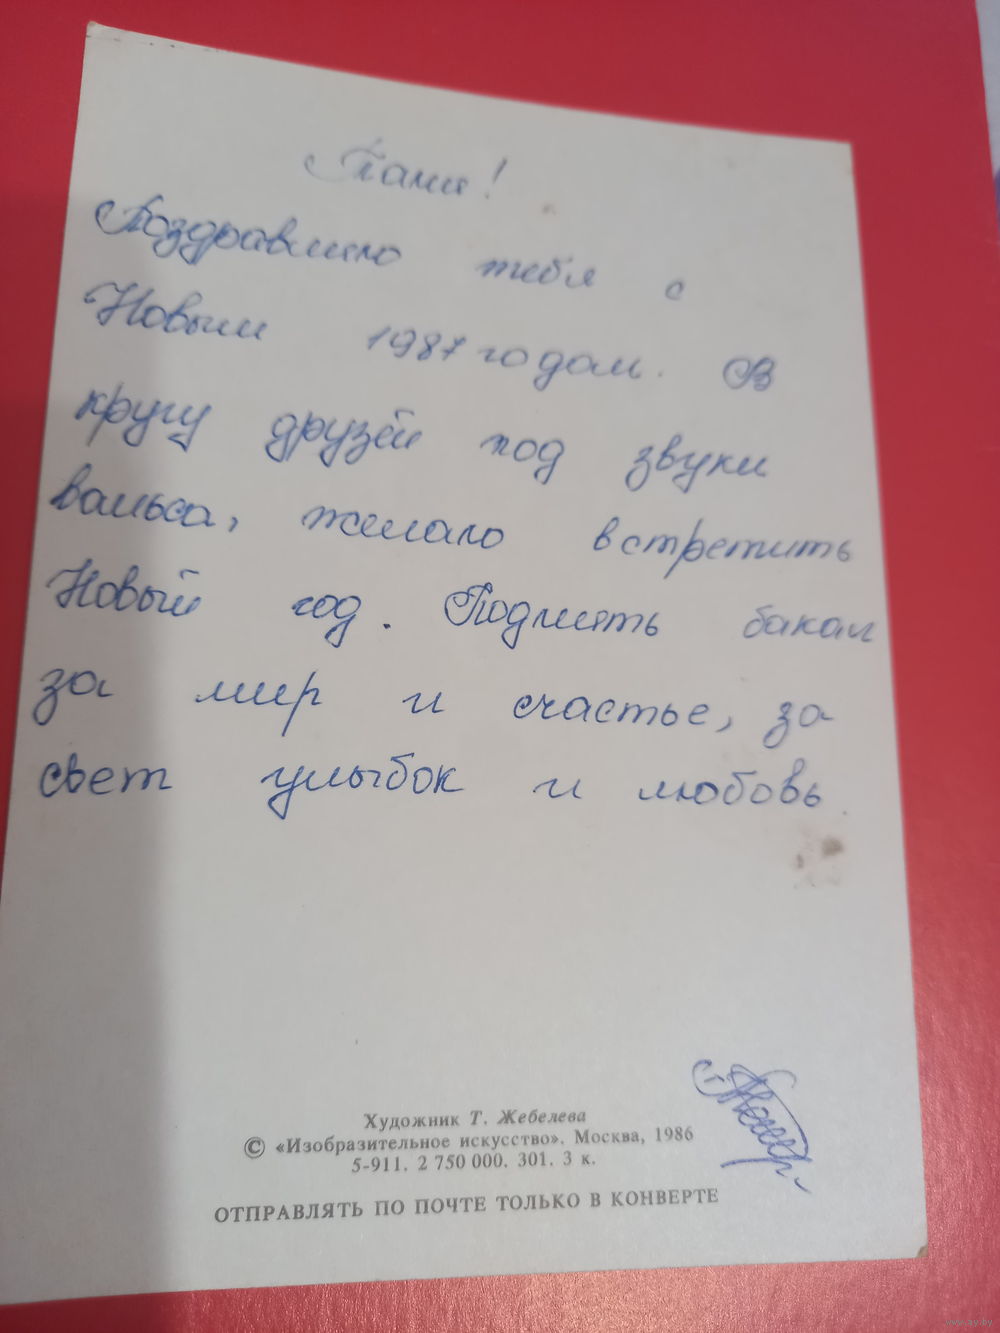 Таня!
Поздравляю тебя с
Новым 1987 годом. В
кругу друзей под звуки
вальса, желаю встретить
Новый год. Поднять бакал
за мир и счастье, за
свет улыбок и любовь.
Художник Т. Жебелева
© «Изобразительное искусство». Москва, 1986
5-911. 2 750 000. 301. 3 к.
ОТПРАВЛЯТЬ ПО ПОЧТЕ ТОЛЬКО В КОНВЕРТЕ
www.ay.by